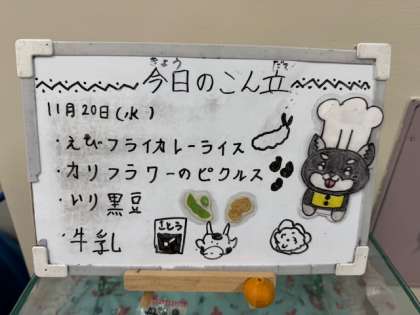 今日のこん立
きょう だて
11月20日(水)
・えびフライカレーライス
・カリフラワーのピクルス
・いり黒豆
・牛乳
さとう